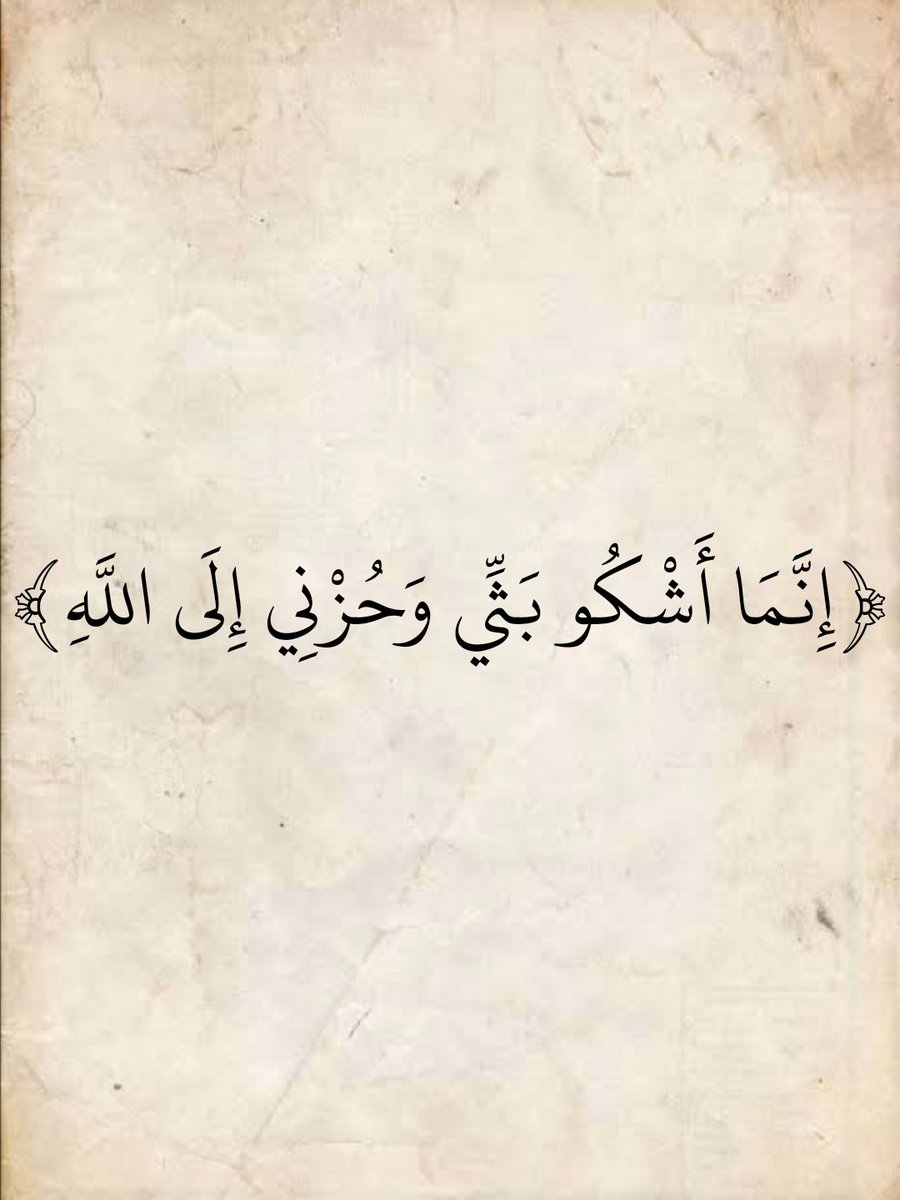 ﴿إِنَّمَا أَشْكُو بَثِّي وَحُزْنِي إِلَى اللَّهِ﴾